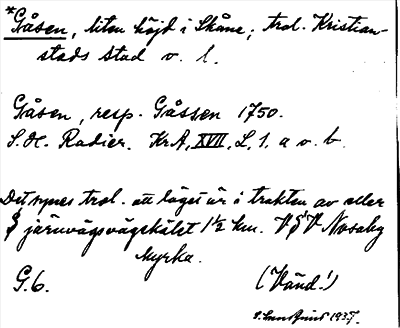 *Gåsen, liten höjd i Skåne; trol. Kristian-
stads stad v. l.
Gåsen, resp. Gåssen 1750.
S.H. Radier. KrA, XVII, L, 1, a o. b.
Det synes trol. att läget är i trakten av eller
järnvägsvägskälet 1½ km. V Nosaby
kyrka.
G.6. (Vänd!)
1937.